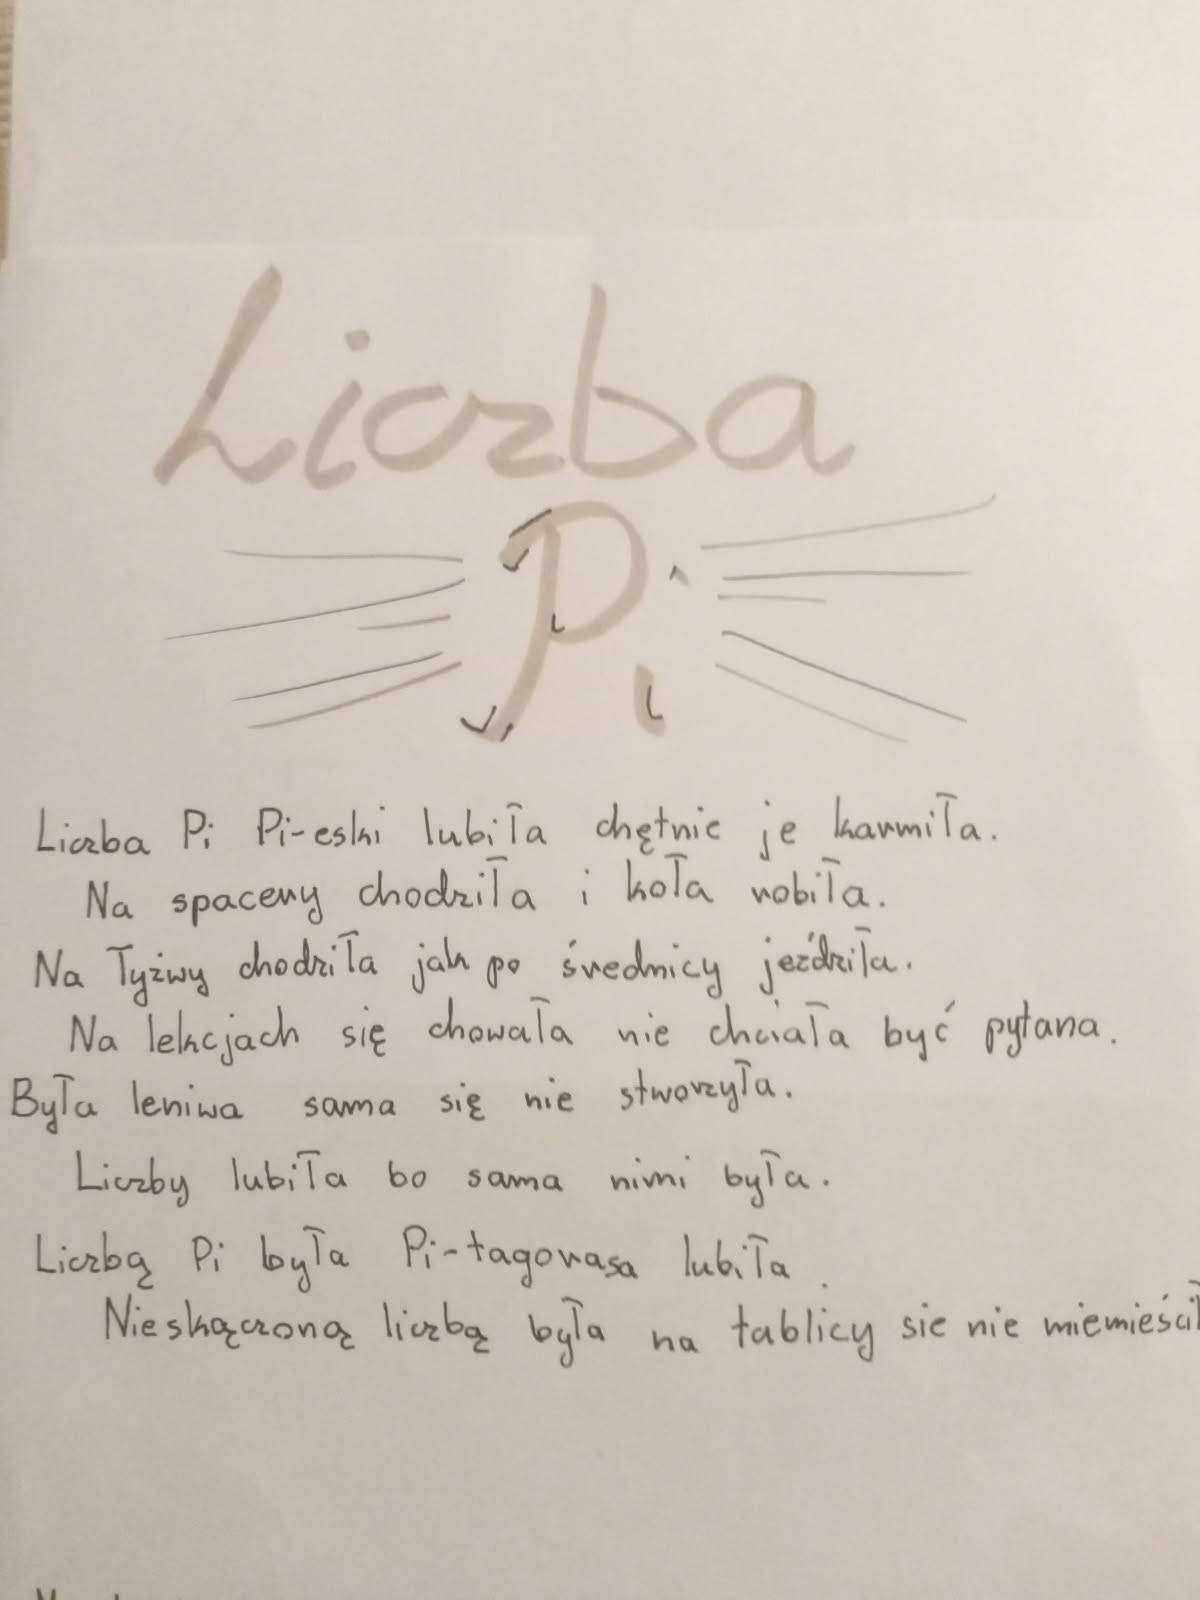 Liczba
Pi
Liczba Pi Pi-eski lubiła chętnie je karmiła.
Na spacery chodziła i koła robiła.
Na łyżwy chodziła jak po średnicy jeździła.
Na lekcjach się chowała nie chciała być pytana.
Była leniwa sama się nie stworzyła.
Liczby lubiła bo sama nimi była.
Liczbą Pi była Pi-tagorasa lubiła.
Nieskączoną liczbą była na tablicy sie nie